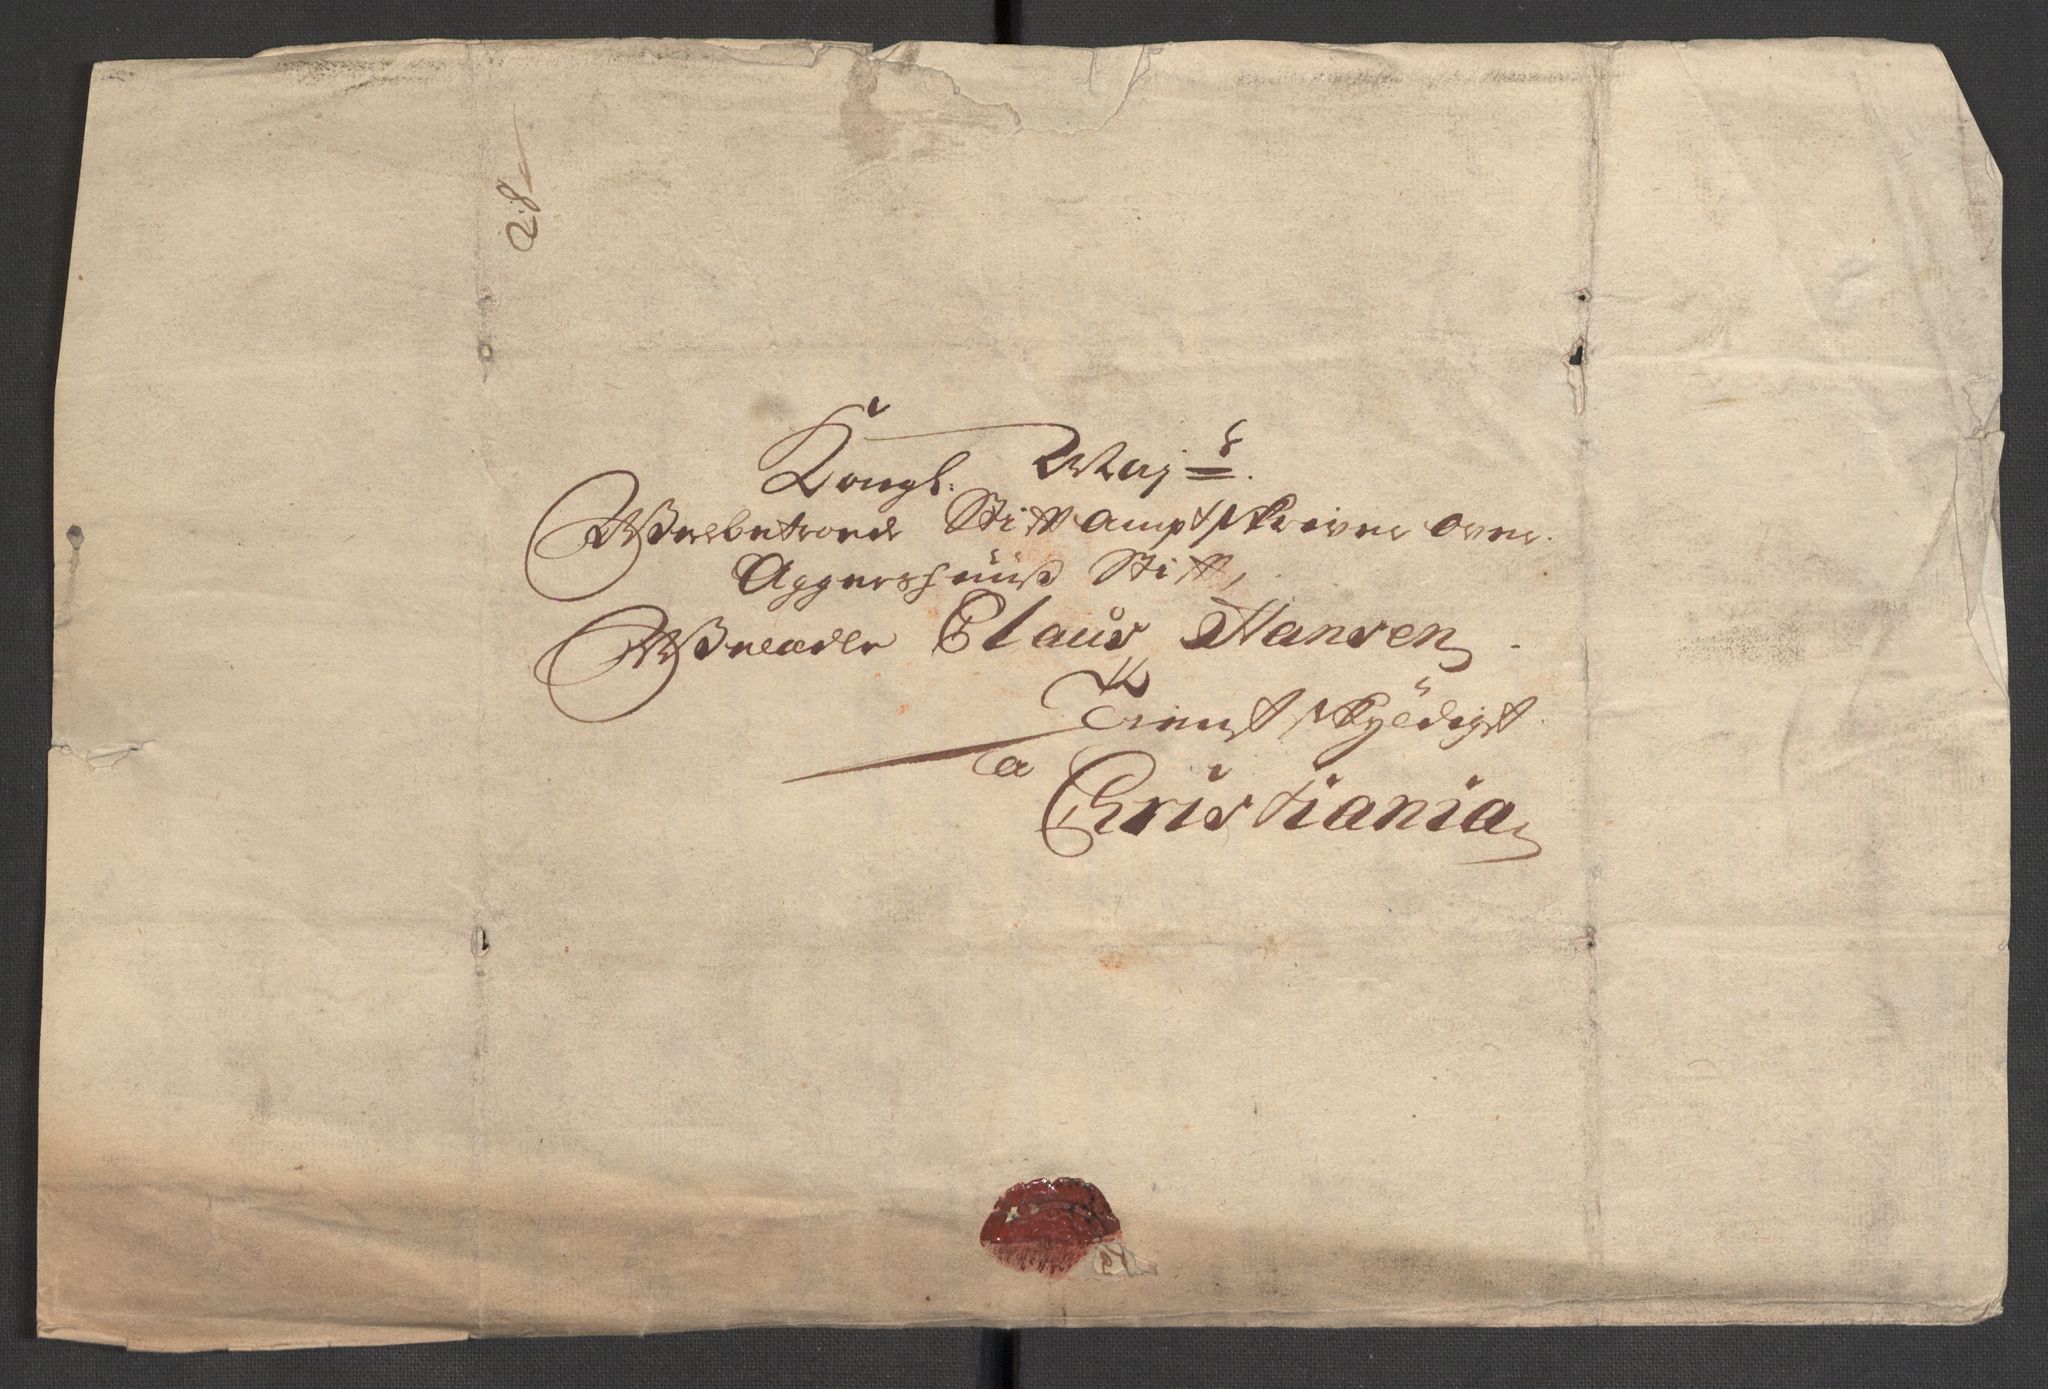 28
Kongl. Maj:s
Velbetroede Stifftamptskriver over
Aggershuuß Stifft,
Velædle Claus Hansen
Tienstskyldigst
a
Christiania